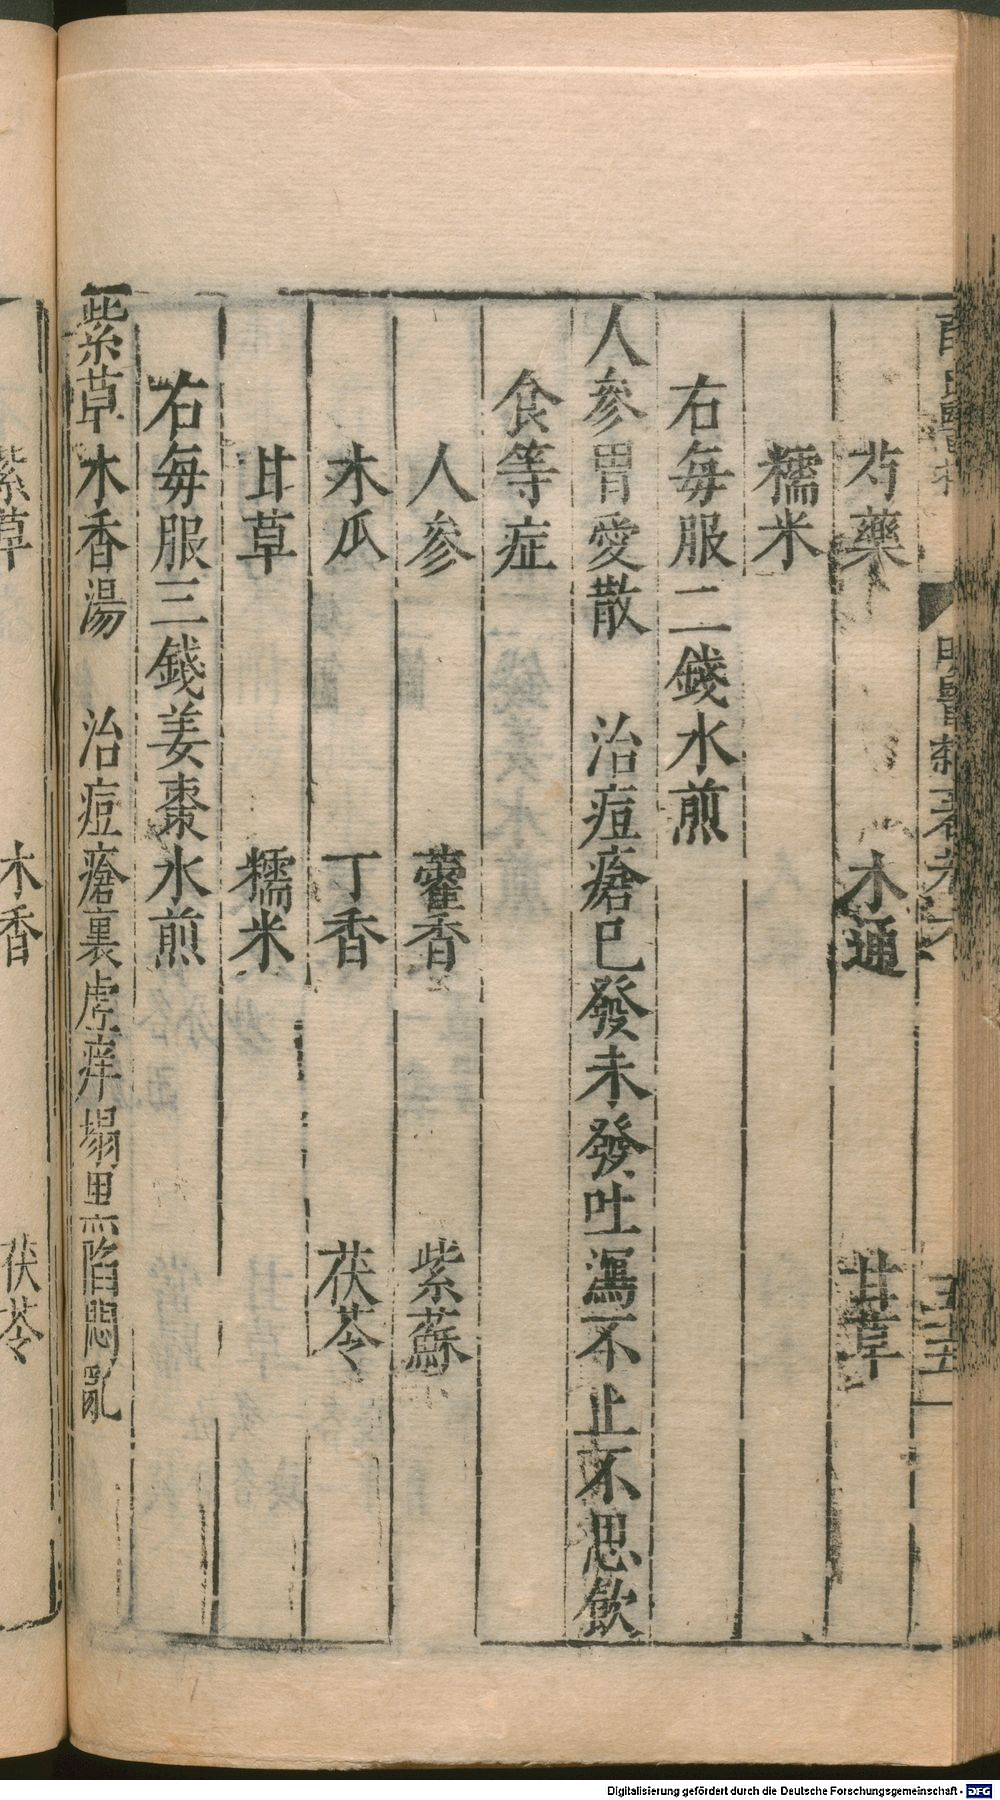 芍藥　木通　甘草
糯米
右每服二錢水煎
人參胃愛散　治痘瘡已發未發吐瀉不止不思飲
食等症
人參　藿香　紫蘇
木瓜　丁香　茯苓
甘草　糯米
右每服三錢姜棗水煎
紫草木香湯　治痘瘡裏虛痒塌黑陷悶亂
紫草　木香　茯苓
明醫雜著卷六
五十五
Digitalisierung gefördert durch die Deutsche Forschungsgemeinschaft - DFG